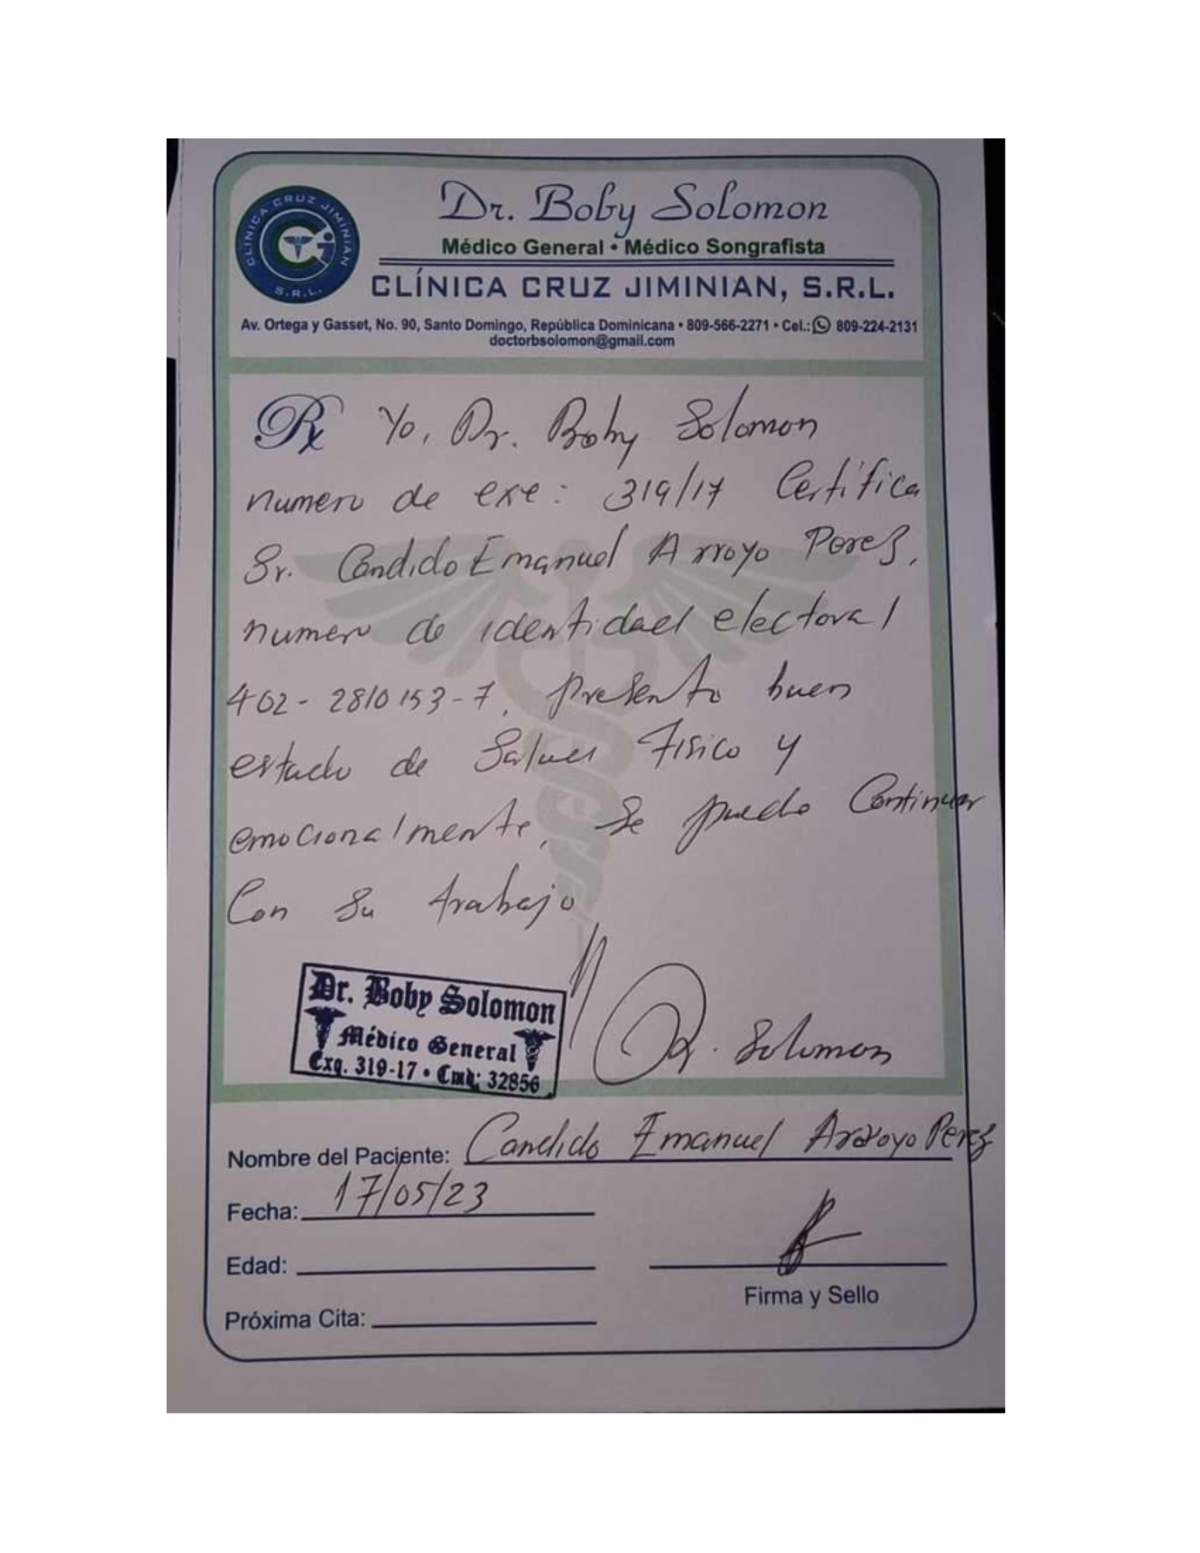 CLÍNICA CRUZ JIMINIAN
S.R.L.
Dr. Boby Solomon
Médico General • Médico Songrafista
CLÍNICA CRUZ JIMINIAN, S.R.L.
Av. Ortega y Gasset, No. 90, Santo Domingo, República Dominicana • 809-566-2271 • Cel.: 809-224-2131
doctorbsolomon@gmail.com
Rx Yo, Dr. Boby Solomon
numero de exe: 319/17 Certifica
Sr. Candido Emanuel Arroyo Perez,
numero de identidad electoral
402-2810153-7, presento buen
estado de Salud Fisico y
emocionalmente, Se puede Continuar
Con Su trabajo
Dr. Boby Solomon
Médico General
Exq. 319-17 • Cmd: 32856
Dr. Solomon
Nombre del Paciente: Candido Emanuel Arroyo Perez
Fecha: 17/05/23
Edad:
Firma y Sello
Próxima Cita: